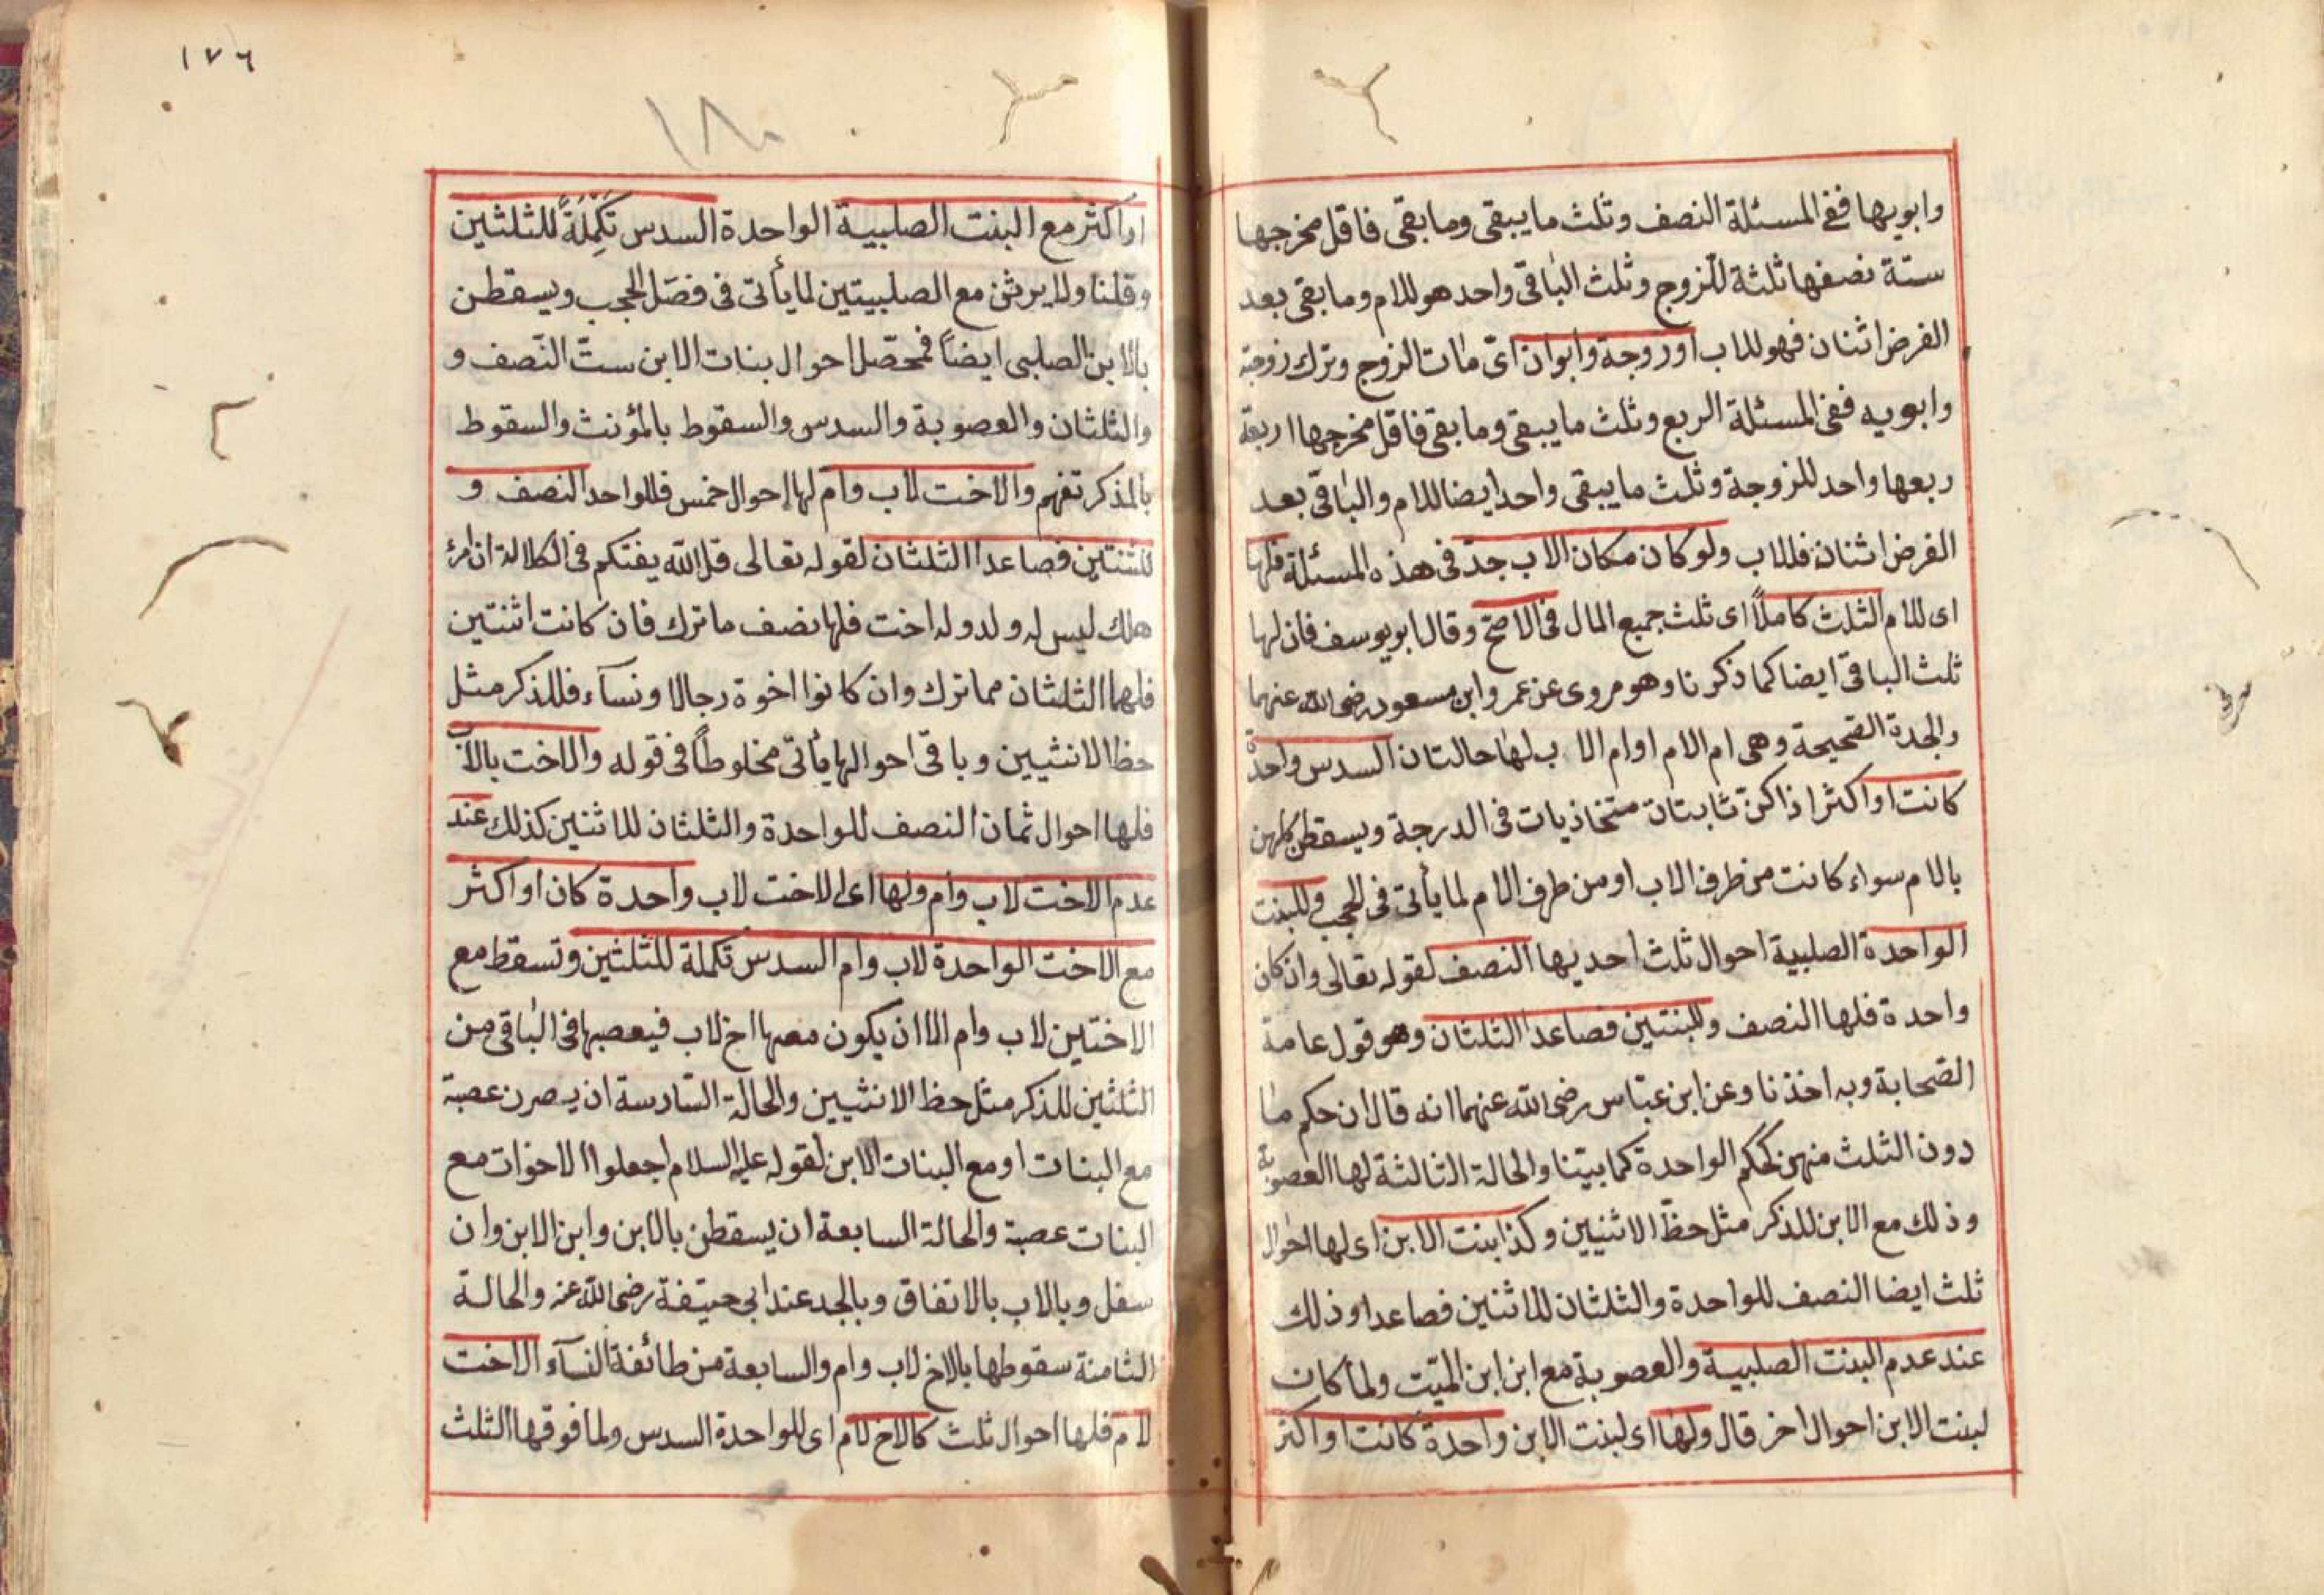 وابويها ففى المسئلة النصف وثلث ما يبقى وما بقى فاقل مخرجها
ستة نصفها ثلثة للزوج وثلث الباقى واحد هو للام وما بقى بعد
الفرض اثنان فهو للاب او زوجة وابوان اىّ مات الزوج وترك زوجة
وابويه ففى المسئلة الربع وثلث ما يبقى وما بقى فاقل مخرجها اربعة
ربعها واحد للزوجة وثلث ما يبقى واحد ايضا للام والباقى بعد
الفرض اثنان فللاب ولو كان مكان الاب جدّ فى هذه المسئلة فلها
اى للام الثلث كاملاً اى ثلث جميع المال فى الاصحّ وقال ابو يوسف فان لها
ثلث الباقى ايضا كما ذكرنا وهو مروى عن عمر وابن مسعود رضى الله عنهما
والجدة الصّحيحة وهى ام الام او ام الاب لها حالتان السدس واحدة
كانت او اكثر اذا كنّ ثابتات متحاذيات فى الدرجة ويسقطن كلهن
بالام سواء كانت من طرف الاب او من طرف الام لما يأتى فى الحجب وللبنت
الواحدة الصلبية احوال ثلث احديها النصف لقوله تعالى وان كان
واحدة فلها النصف وللبنتين فصاعدا الثلثان وهو قول عامة
الصّحابة وبه اخذنا وعن ابن عبّاس رضى الله عنهما انه قال ان حكم ما
دون الثلث منهن كحكم الواحدة كما بيّنا والحالة الثالثة لها العصوبة
وذلك مع الابن للذكر مثل حظّ الانثيين وكذا بنت الابن اى لها احوال
ثلث ايضا النصف للواحدة والثلثان للاثنين فصاعدا وذلك
عند عدم البنت الصلبية والعصوبة مع ابن ابن الميّت ولما كان
لبنت الابن احوال اخر قال ولها اى لبنت الابن واحدة كانت او اكثر
١٧٦
١٨٠
او اكثر مع البنت الصلبية الواحدة السدس تَكْمِلَةً للثلثين
وقلنا ولا يرثن مع الصلبيتين لما يأتى فى فصل الحجب ويسقطن
بالابن الصلبى ايضاً فمحصّل احوال بنات الابن ستّ النّصف و
والثلثان والعصوبة والسدس والسقوط بالمؤنث والسقوط
بالمذكر تفهم والاخت لاب وام لها احوال خمس فللواحد النصف و
للثنتين فصاعدا الثلثان لقوله تعالى قل الله يفتكم فى الكلالة ان امرؤ
هلك ليس له ولد وله اخت فلها نصف ما ترك فان كانت اثنتين
فلهما الثلثان مما ترك وان كانوا اخوة رجالا ونسآء فللذكر مثل
حظ الانثيين وباقى احوالها يأتى مخلوطاً فى قوله والاخت بالاب
فلها احوال ثمان النصف للواحدة والثلثان للاثنين كذلك عند
عدم الاخت لاب وام ولها اى الاخت لاب واحدة كان او اكثر
مع الاخت الواحدة لاب وام السدس تكملة للثلثين وتسقط مع
الاختين لاب وام الا ان يكون معها اخ لاب فيعصبها فى الباقى من
الثلثين للذكر مثل حظ الانثيين والحالة السّادسة ان يصرن عصبة
مع البنات او مع البنات الابن لقوله عليه السلام اجعلوا الاخوات مع
البنات عصبة والحالة السابعة ان يسقطن بالابن وابن الابن وان
سفل وبالاب بالاتفاق وبالجد عند ابى حنيفة رضى الله عنه والحالة
الثامنة سقوطها بالاخ لاب وام والسابعة من طائفة النسآء الاخت
لام فلها احوال ثلث كالاخ لام اى للواحدة السدس ولما فوقها الثلث